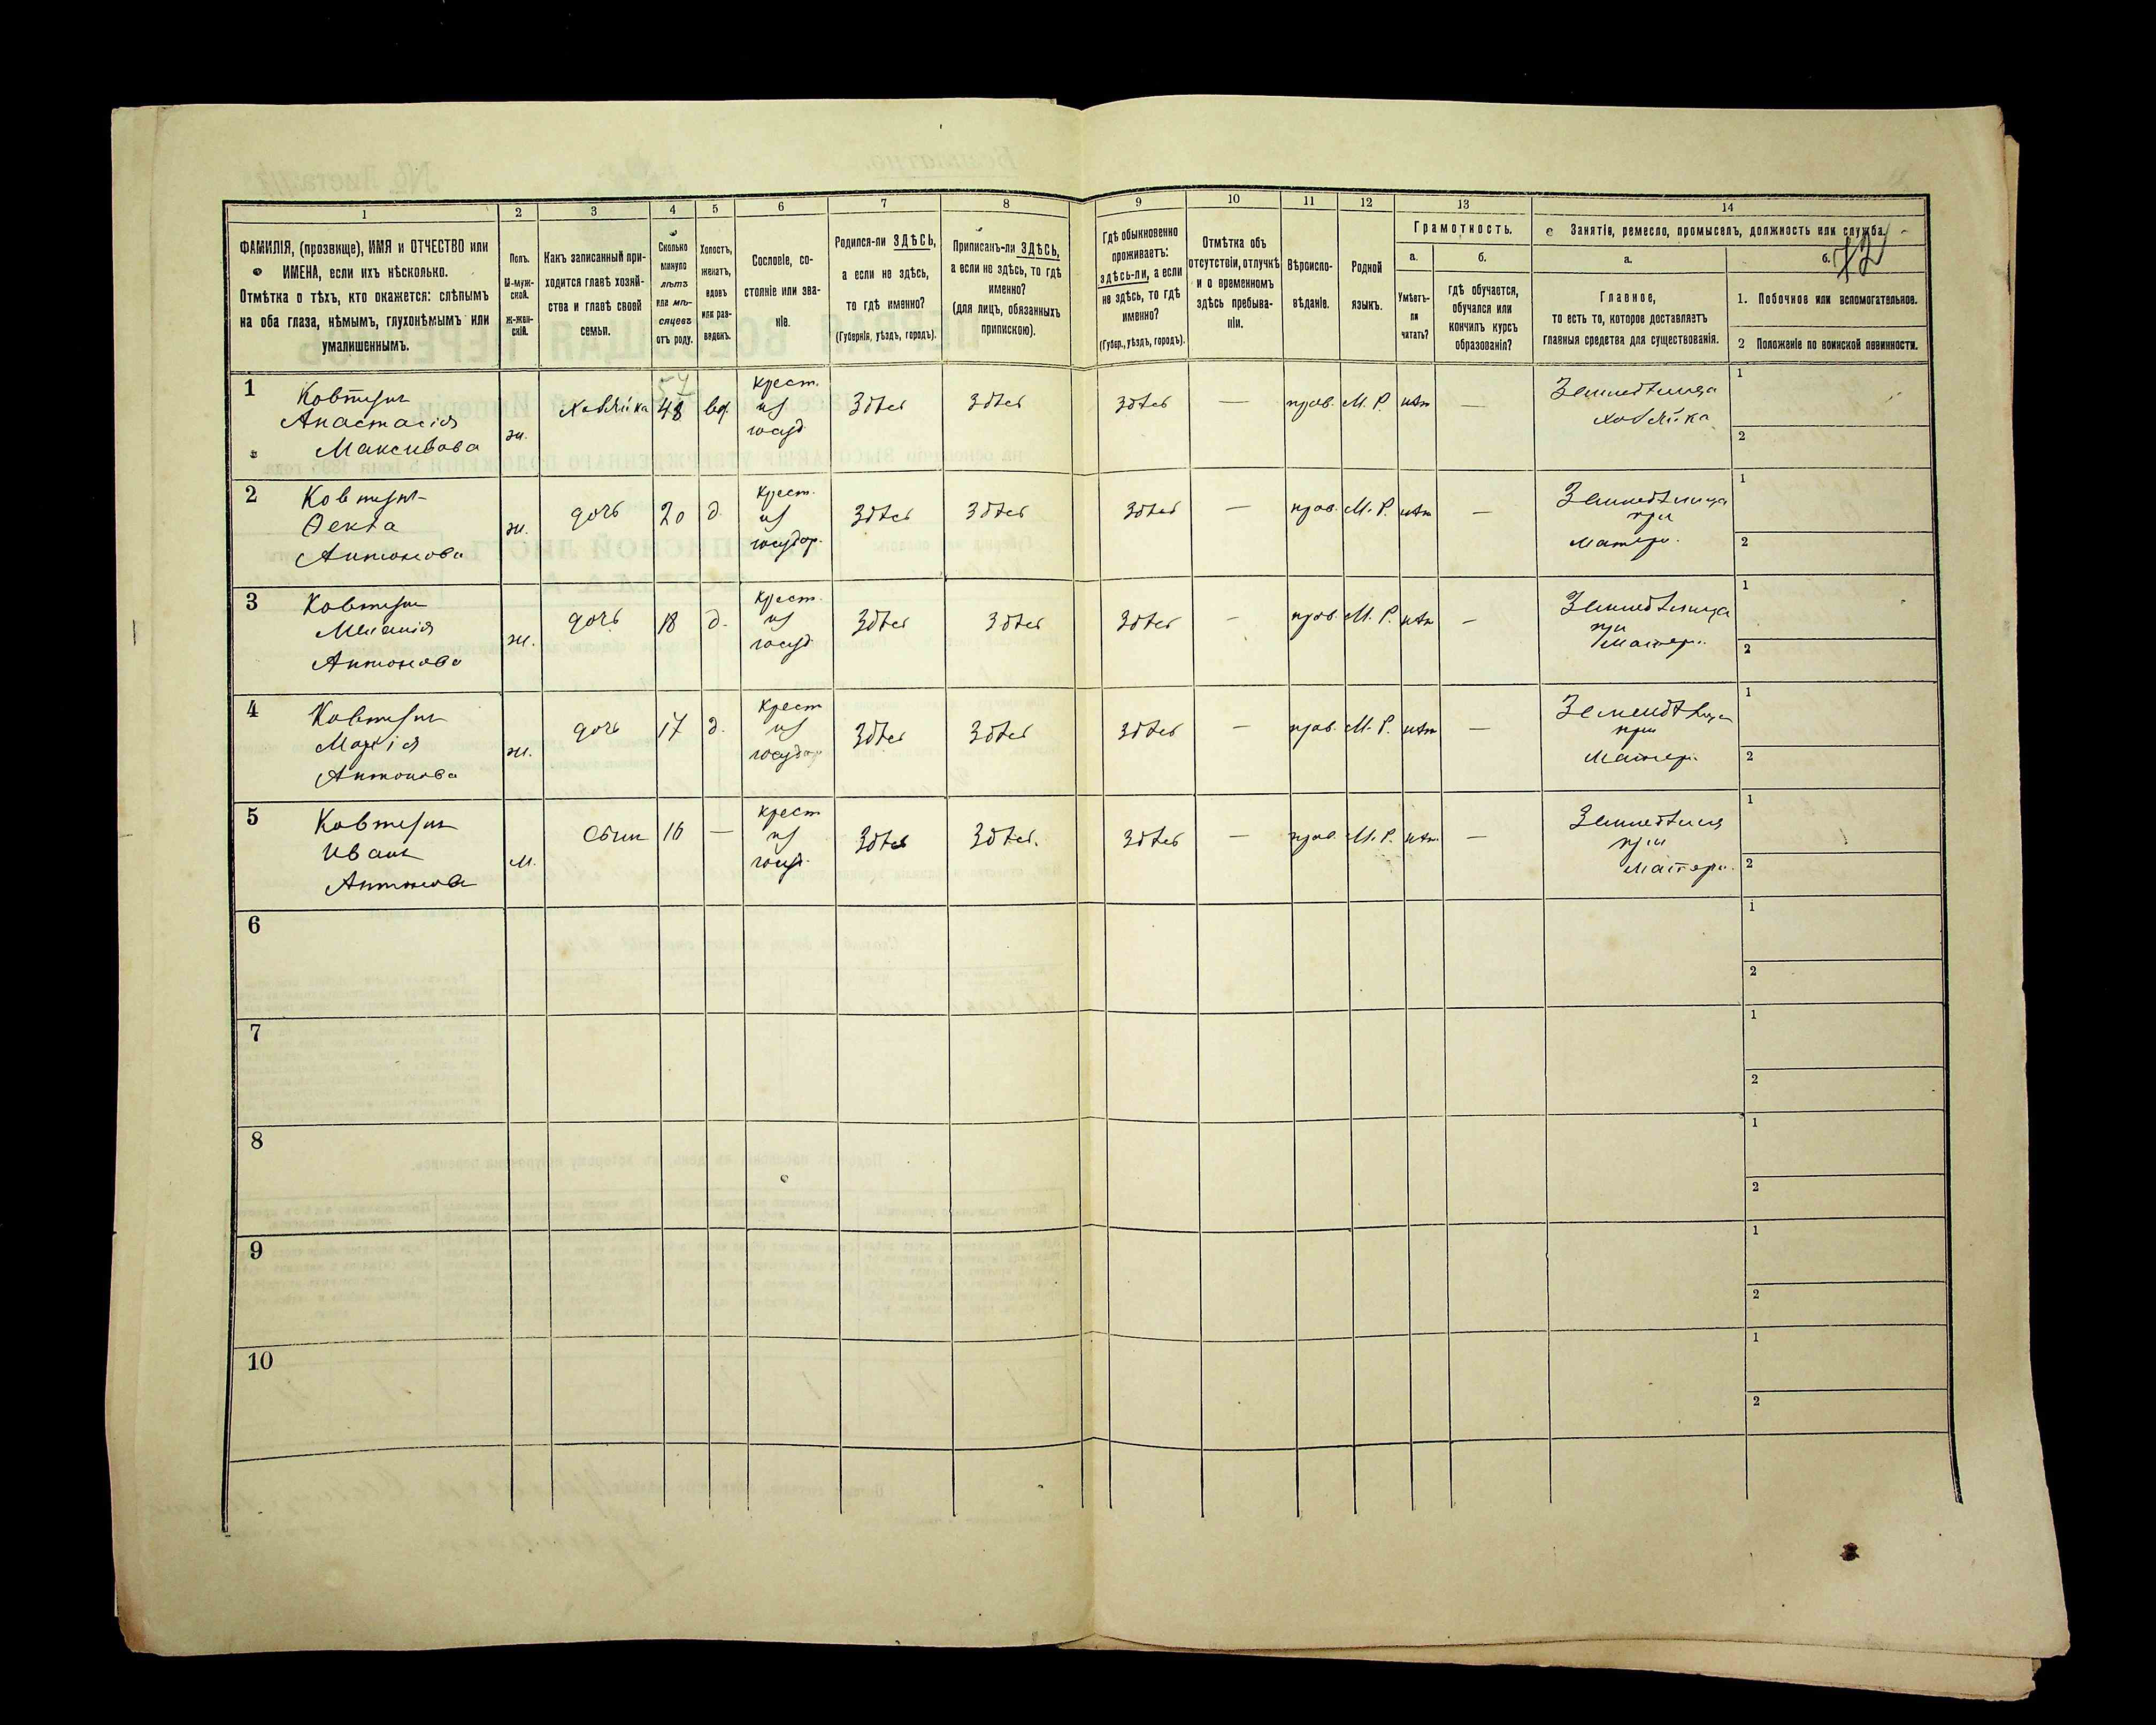 1 2 3 4 5 6 7 8 9 10 11 12 13 14
ФАМИЛІЯ, (прозвище), ИМЯ и ОТЧЕСТВО или
ИМЕНА, если ихъ нѣсколько.
Отмѣтка о тѣхъ, кто окажется: слѣпымъ
на оба глаза, нѣмымъ, глухонѣмымъ или
умалишеннымъ.
Полъ.
М-муж-
ской.
Ж-жен-
скій.
Какъ записанный при-
ходится главѣ хозяй-
ства и главѣ своей
семьи.
Сколько
минуло
лѣтъ
или мѣ-
сяцевъ
отъ роду.
Холостъ,
женатъ,
вдовъ
или раз-
веденъ.
Сословіе, со-
стояніе или зва-
ніе.
Родился-ли ЗДѢСЬ,
а если не здѣсь,
то гдѣ именно?
(Губернія, уѣздъ, городъ).
Приписанъ-ли ЗДѢСЬ,
а если не здѣсь, то гдѣ
именно?
(для лицъ, обязанныхъ
припискою).
Гдѣ обыкновенно
проживаетъ:
здѣсь-ли, а если
не здѣсь, то гдѣ
именно?
(Губер., уѣздъ, городъ).
Отмѣтка объ
отсутствіи, отлучкѣ
и о временномъ
здѣсь пребыва-
ніи.
Вѣроиспо-
вѣданіе.
Родной
языкъ.
Грамотность.
а.
Умѣетъ-
ли
читать?
б.
гдѣ обучается,
обучался или
кончилъ курсъ
образованія?
Занятія, ремесло, промыселъ, должность или служба.
а.
Главное,
то есть то, которое доставляетъ
главныя средства для существованія.
б.
1. Побочное или вспомогательное.
2 Положеніе по воинской повинности.
1
Анастасія
Максимова
ж.
хозяйка
48
крест.
из
госуд
здѣсь
здѣсь
здѣсь
—
прав.
М. Р.
нѣт
—
хозяйка
1
2
2
Ѳекла
Антонова
ж.
дочь
20
д.
крест.
из
государ.
здѣсь
здѣсь
здѣсь
—
прав.
М. Р.
нѣт
—
при
матери.
1
2
3
Меланія
Антонова
ж.
дочь
18
д.
крест.
из
госуд
здѣсь
здѣсь
здѣсь
—
прав.
М. Р.
нѣт
—
при
матери.
1
2
4
Марія
Антонова
ж.
дочь
17
д.
крест
из
государ
здѣсь
здѣсь
здѣсь
—
прав.
М. Р.
нѣт
—
при
матери
1
2
5
Иванъ
Антоновъ
м.
сын
16
—
крест
из
госуд.
здѣсь
здѣсь.
здѣсь
—
прав.
М. Р.
нѣт
—
при
матери.
1
2
6
1
2
7
1
2
8
1
2
9
1
2
10
1
2